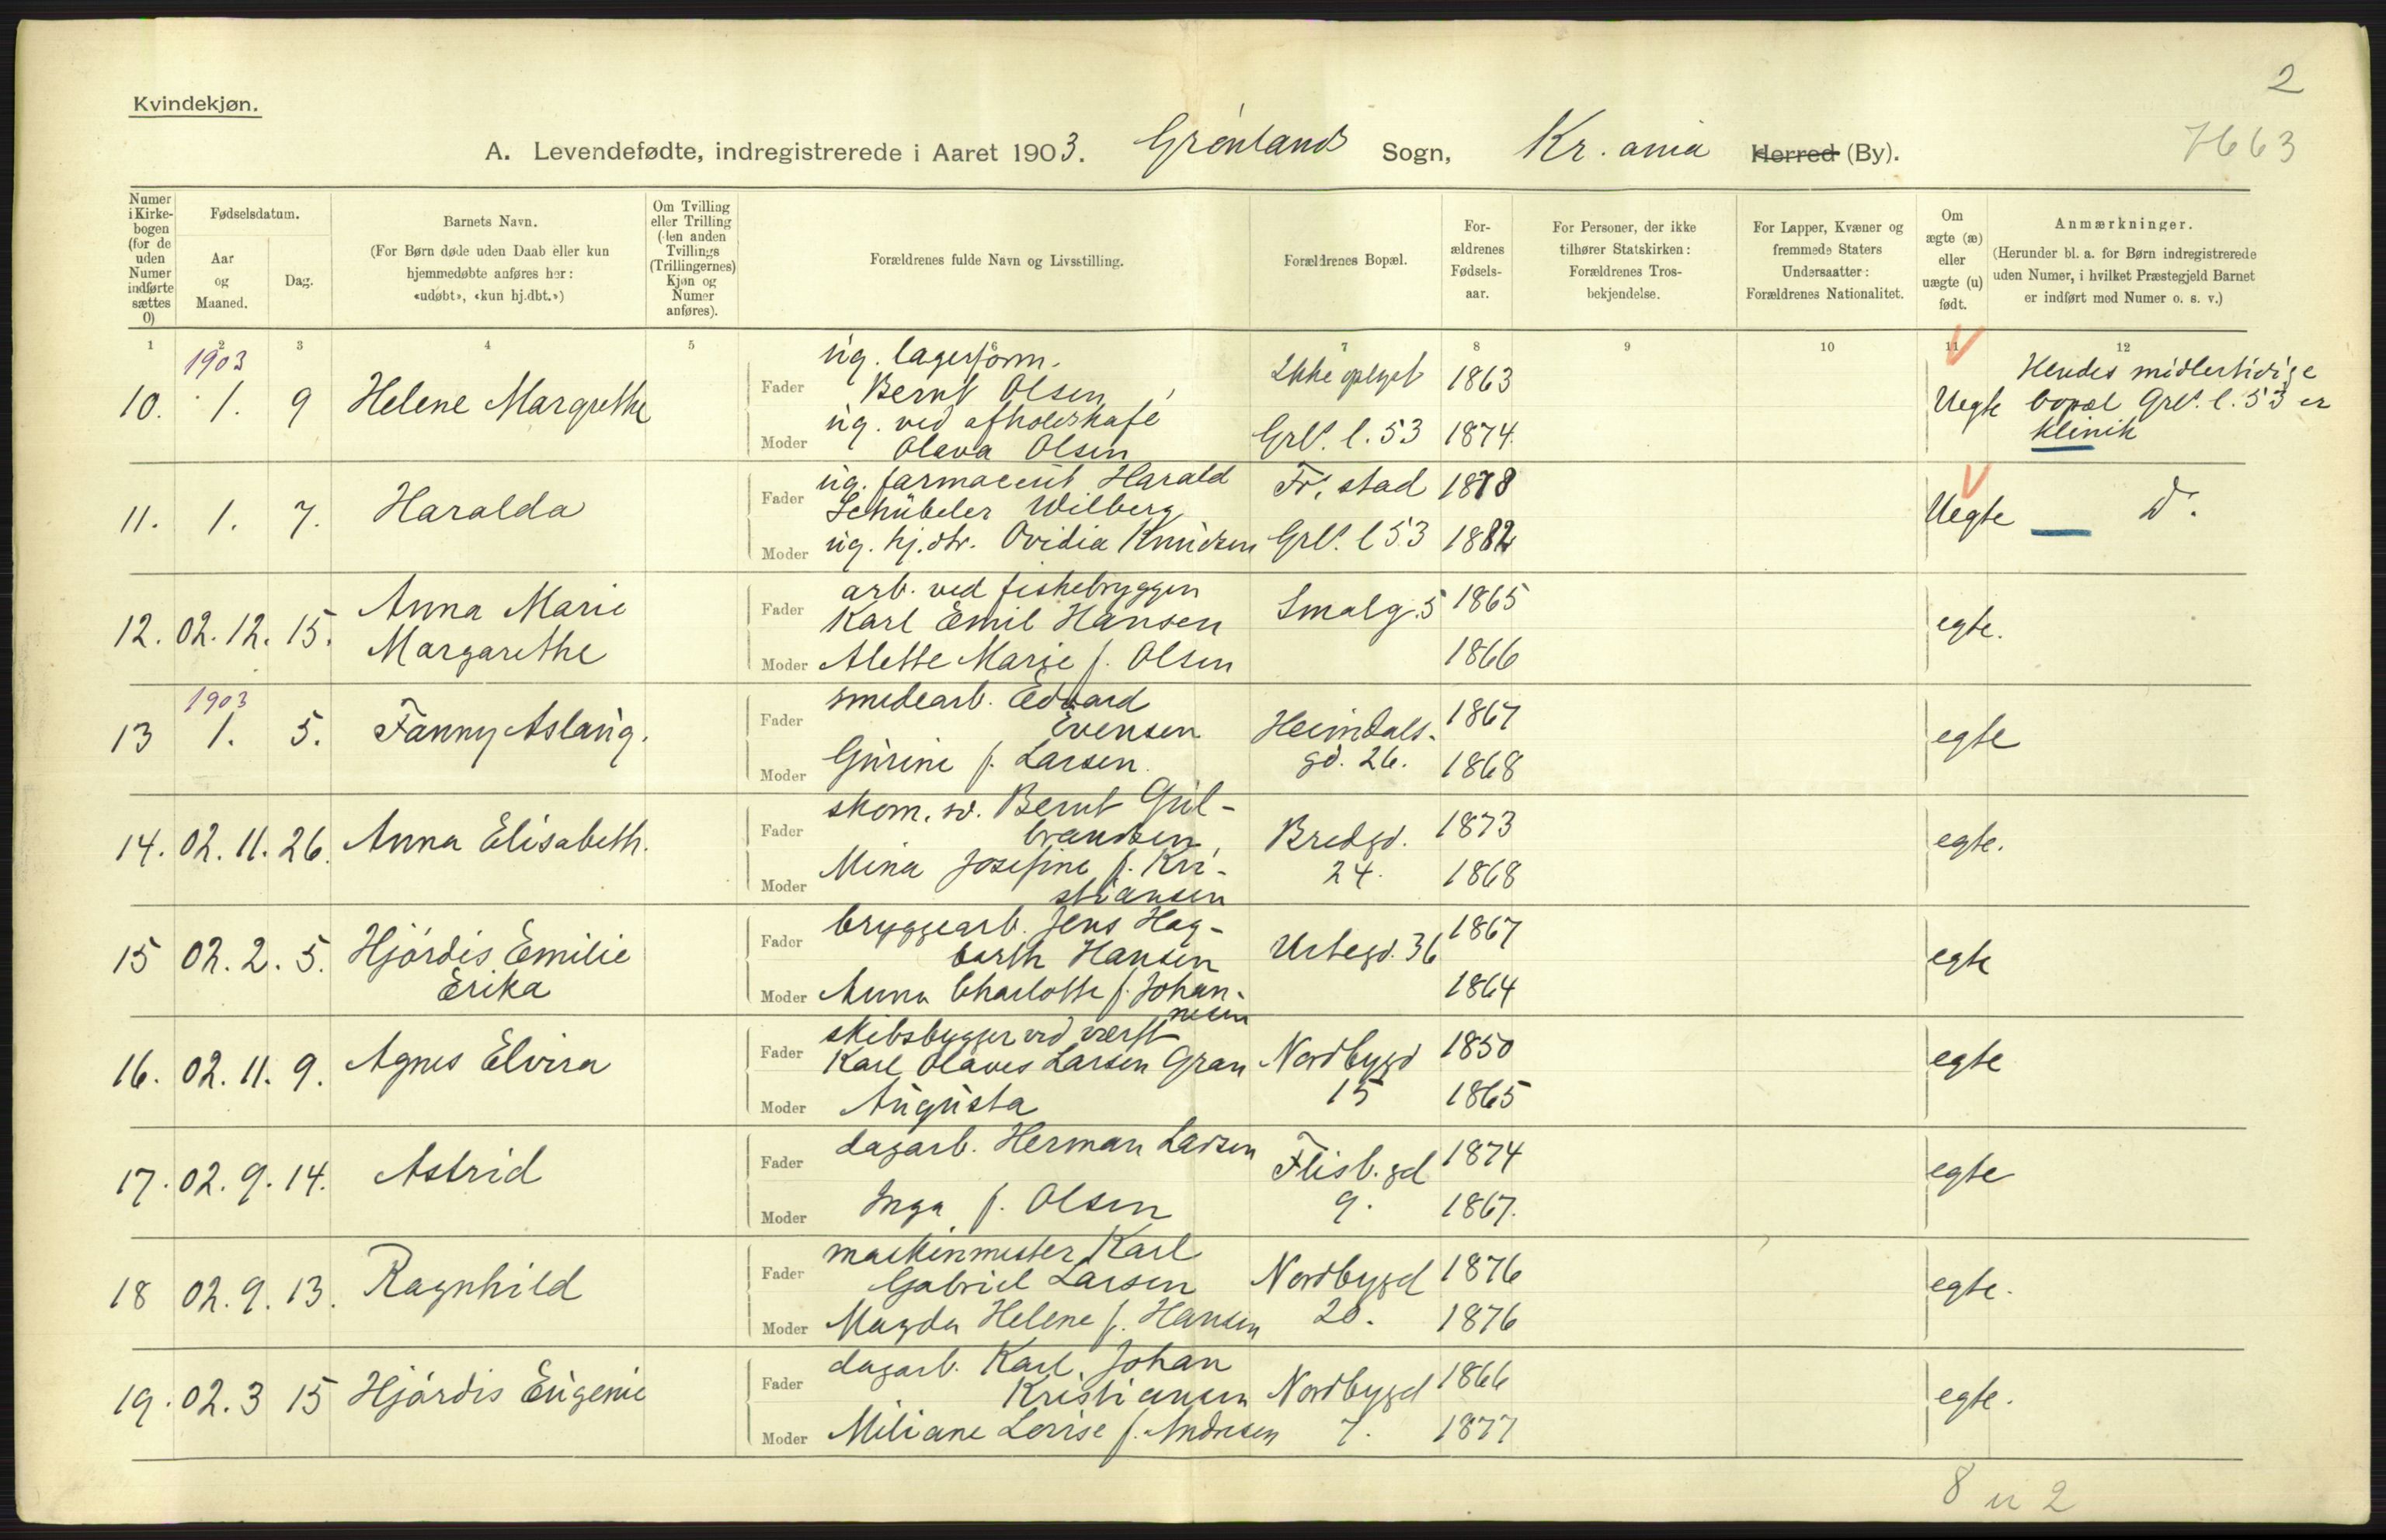 2
Kvindekjøn.
A. Levendefødte, indregistrerede i Aaret 1903. Grønlands Sogn, Kr.ania Herred (By).
7663
Numer i Kirke-bogen (for de uden Numer indførte sættes 0)
Fødselsdatum.
Aar og Maaned.
Dag.
Barnets Navn.
(For Børn døde uden Daab eller kun hjemmedøbte anføres her: «udøbt», «kun hj.dbt.»)
Om Tvilling eller Trilling (den anden Tvillings (Trillingernes) Kjøn og Numer anføres).
Forældrenes fulde Navn og Livsstilling.
Forældrenes Bopæl.
For-ældrenes Fødsels-aar.
For Personer, der ikke tilhører Statskirken: Forældrenes Tros-bekjendelse.
For Lapper, Kvæner og fremmede Staters Undersaatter: Forældrenes Nationalitet.
Om ægte (æ) eller uægte (u) født.
Anmærkninger.
(Herunder bl. a. for Børn indregistrerede uden Numer, i hvilket Præstegjeld Barnet er indført med Numer o. s. v.)
1 2 3 4 5 6 7 8 9 10 11 12
1903
10. 1. 9 Helene Margrethe
Fader ug. lagerform.
Bernt Olsen, Ikke oplyst 1863
Moder ug. ved afholdskafé
Olava Olsen Grl. l. 53 1874.
Uegte Hendes midlertidige
bopæl Grl. l. 53 er
klinik
11. 1. 7. Haralda
Fader ug. farmaceut Harald
Schübeler Wilberg Fr. stad 1878
Moder ug. hj. dtr. Ovidia Knudsen Grl. l 53 1882
Uegte D.
12. 02. 12. 15. Anna Marie
Margarethe
Fader arb. ved fiskebryggen
Karl Emil Hansen Smalg. 5 1865
Moder Alette Marie f. Olsen 1866
egte.
1903
13 1. 5. Fanny Aslaug.
Fader smedearb. Edvard
Evensen Heimdals- 1867
Moder Gurine f. Larsen. gd. 26. 1868
egte
14. 02. 11. 26. Anna Elisabeth.
Fader skom. sv. Bernt Gul-
brandsen, Bredgd. 1873
Moder Mina Josefine f. Kri-
stiansen 24. 1868
egte.
15 02. 2. 5. Hjørdis Emilie
Erika
Fader bryggearb. Jens Hag-
barth Hansen Urtegd. 36 1867
Moder Anna Charlotte f. Johan-
nesen 1864
egte
16. 02. 11. 9. Agnes Elvira
Fader skibsbygger ved værft
Karl Olaves Larsen Gran Nordbygd 1850
Moder Augusta 15 1865
egte
17. 02. 9. 14. Astrid
Fader dagarb. Herman Larsen Flisb. gd 1874
Moder Inga f. Olsen 9. 1867.
egte
18 02. 9. 13. Ragnhild
Fader maskinmester Karl
Gabriel Larsen Nordbygd 1876
Moder Magda Helene f. Hansen 20. 1876
egte.
19. 02. 3 15 Hjørdis Eugenie
Fader dagarb. Karl Johan
Kristiansen Nordbygd 1866
Moder Miliane Lovise f. Andresen 7. 1877
egte.
8 u 2